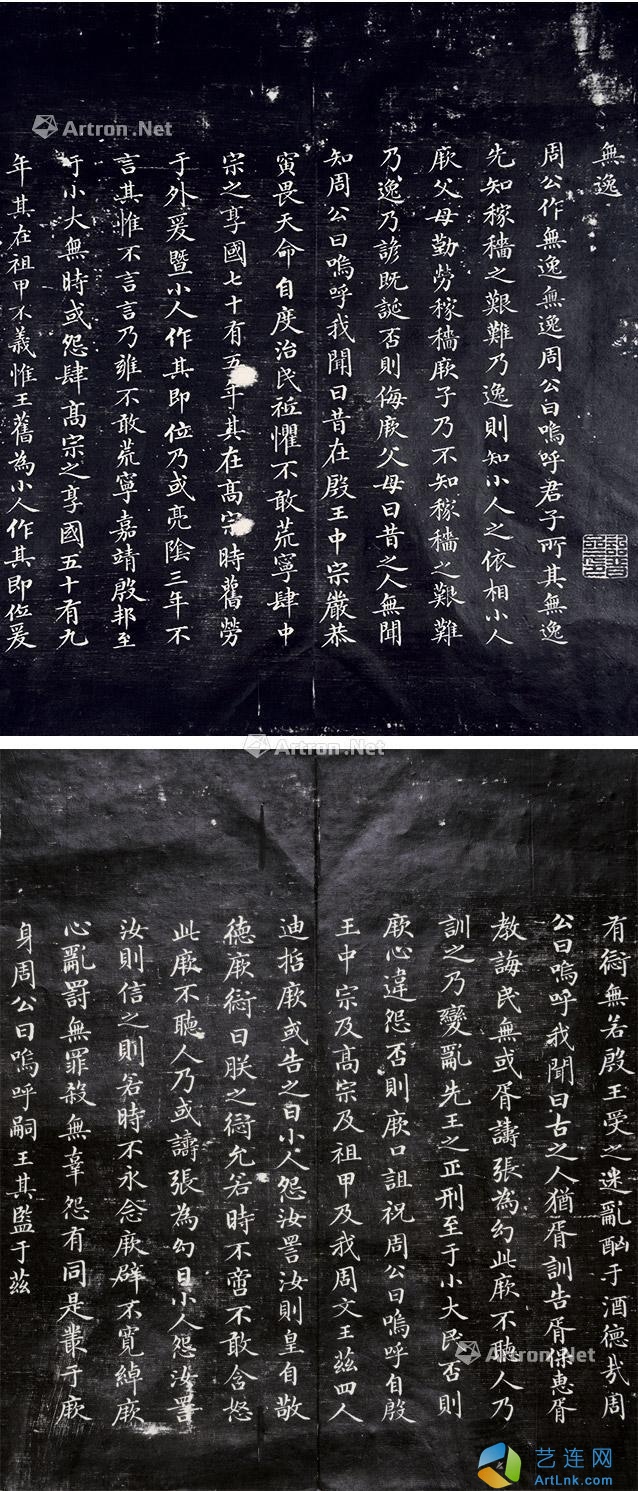 無逸
周公作無逸無逸周公曰嗚呼君子所其無逸
先知稼穡之艱難乃逸則知小人之依相小人
厥父母勤勞稼穡厥子乃不知稼穡之艱難
乃逸乃諺既誕否則侮厥父母曰昔之人無聞
知周公曰嗚呼我聞曰昔在殷王中宗嚴恭
寅畏天命自度治民祗懼不敢荒寧肆中
宗之享國七十有五年其在髙宗時舊勞
于外爰暨小人作其即位乃或亮陰三年不
言其惟不言言乃雍不敢荒寧嘉靖殷邦至
于小大無時或怨肆髙宗之享國五十有九
年其在祖甲不義惟王舊為小人作其即位爰
Artron.Net
Artron.Net
有愆無若殷王受之迷亂酗于酒德哉周
公曰嗚呼我聞曰古之人猶胥訓告胥保惠胥
教誨民無或胥譸張為幻此厥不聽人乃
訓之乃變亂先王之正刑至于小大民否則
厥心違怨否則厥口詛祝周公曰嗚呼自殷
王中宗及髙宗及祖甲及我周文王茲四人
迪哲厥或告之曰小人怨汝詈汝則皇自敬
德厥愆曰朕之愆允若時不啻不敢含怒
此厥不聽人乃或譸張為幻曰小人怨汝詈
汝則信之則若時不永念厥辟不寬綽厥
心亂罰無罪殺無辜怨有同是叢于厥
身周公曰嗚呼嗣王其監于茲
Artron.Net
艺连网
ArtLnk.com